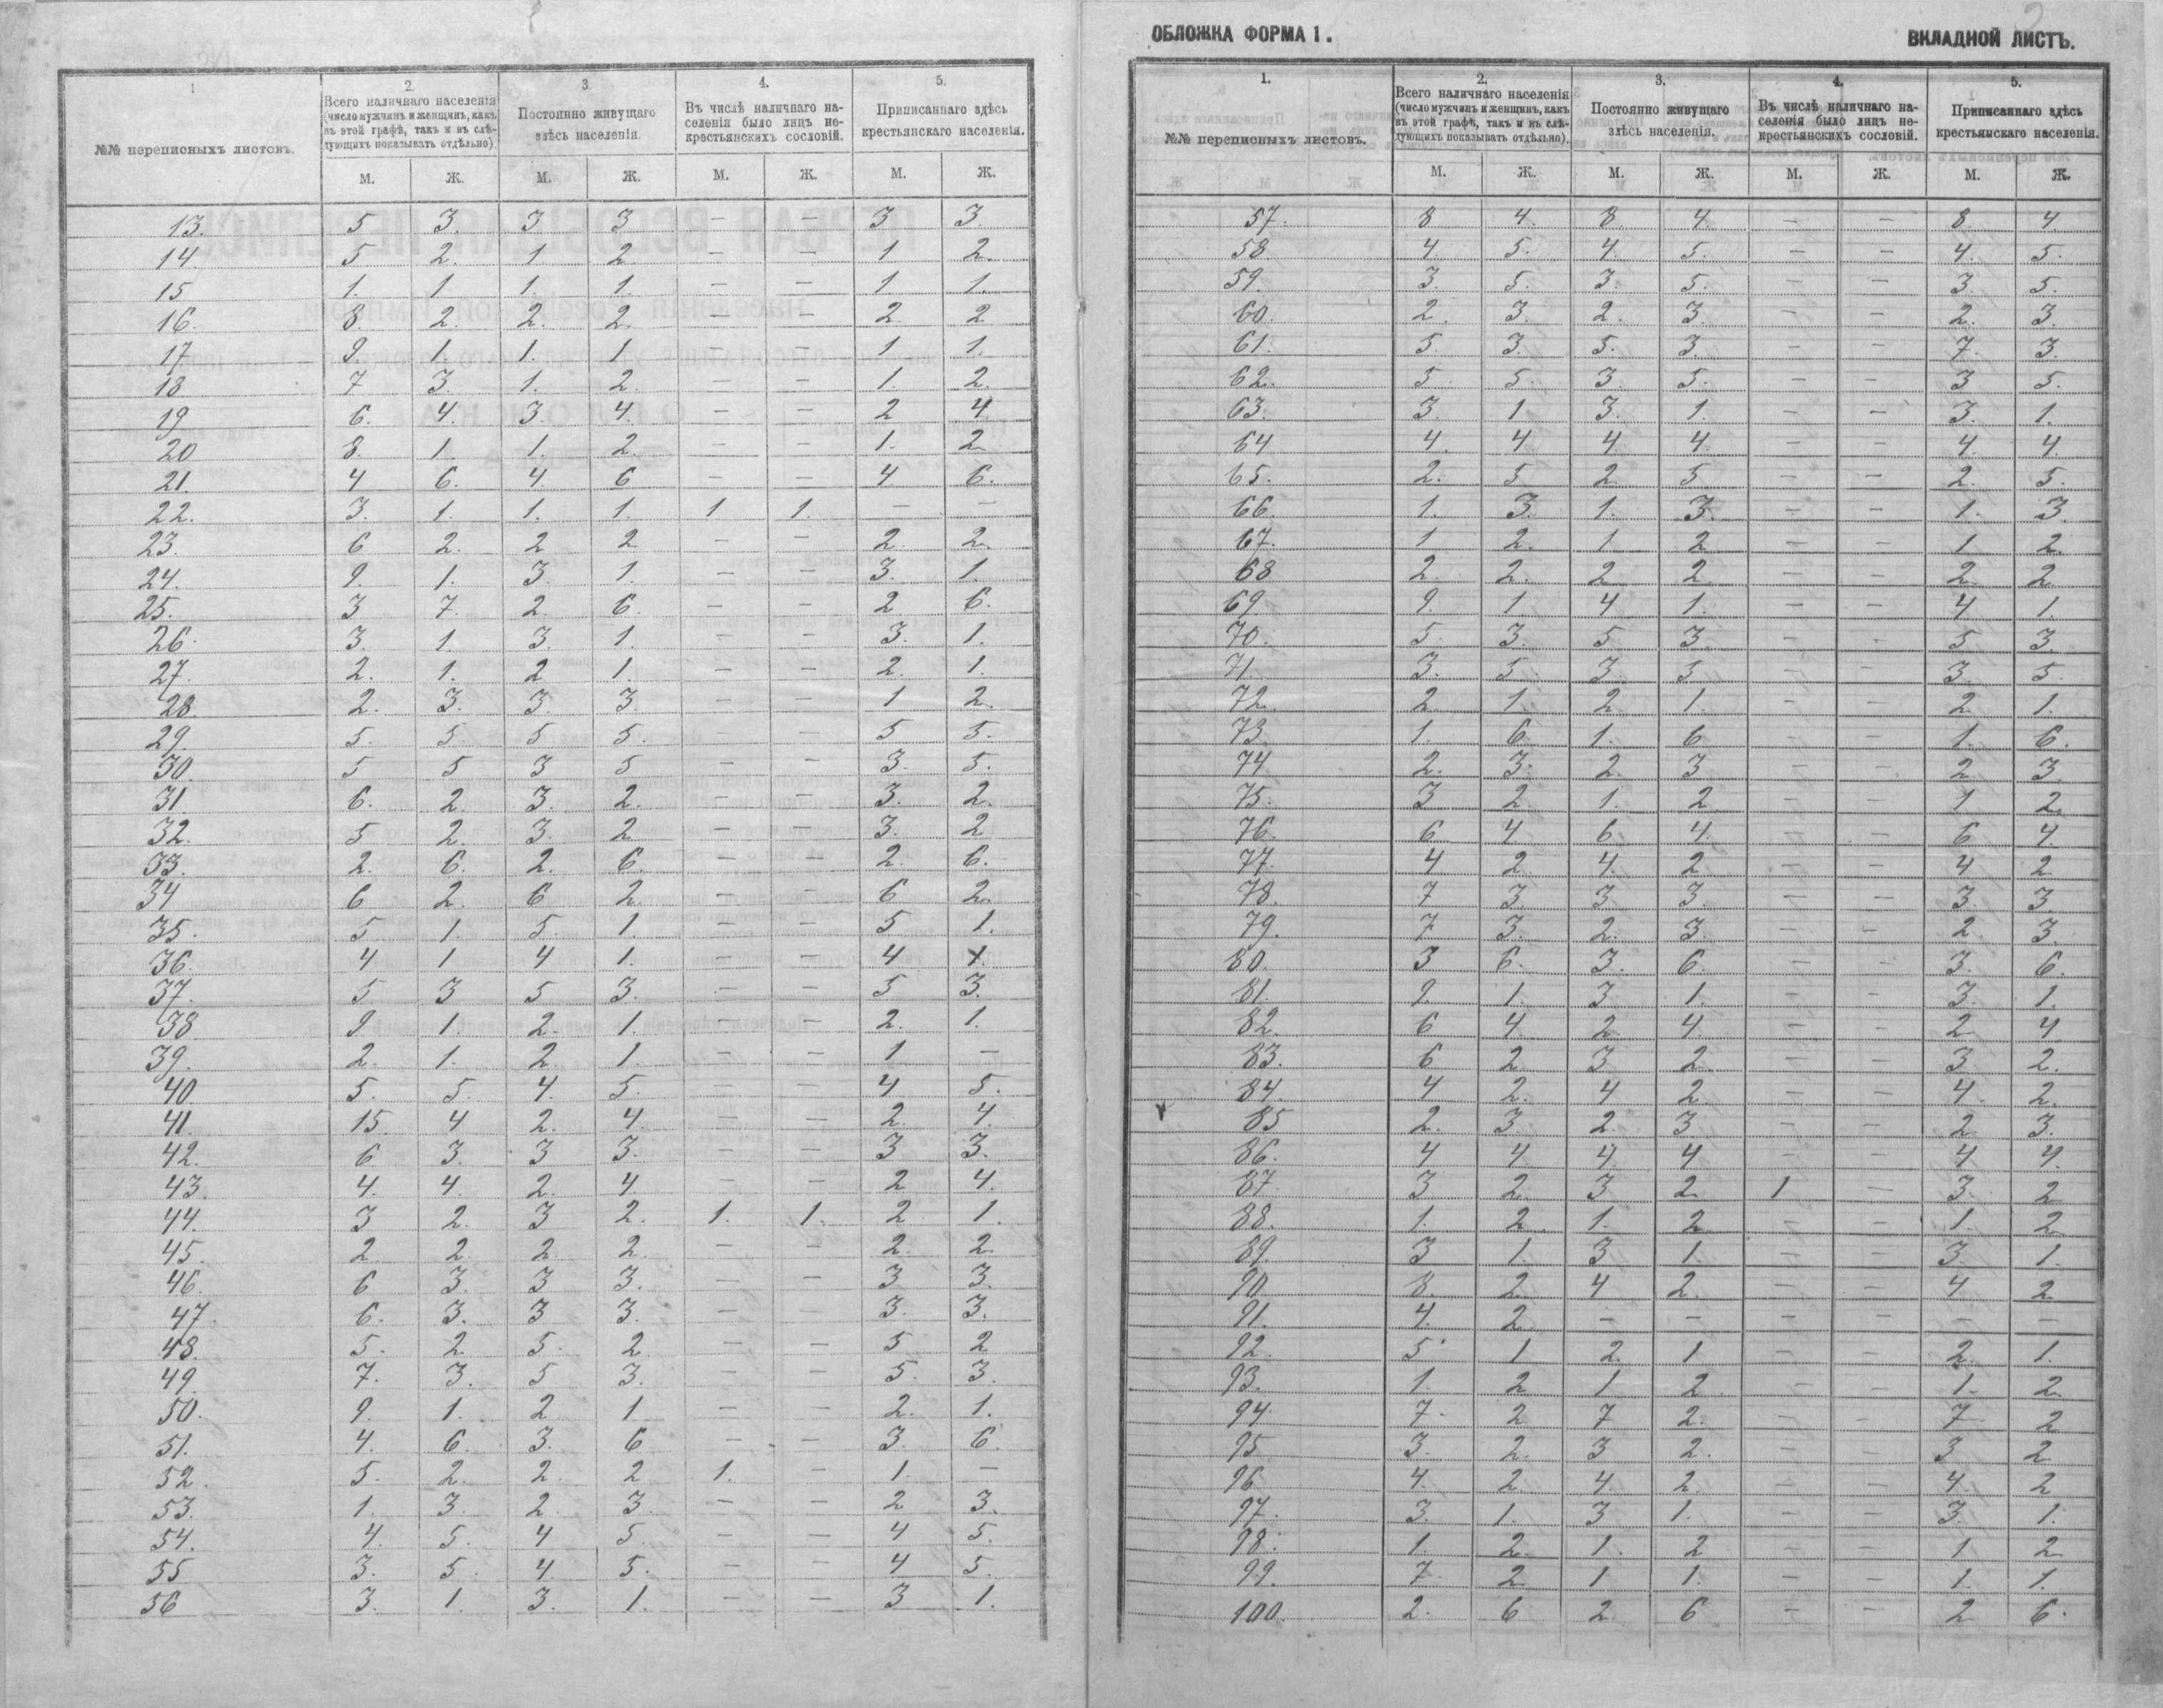 1
2
3
4.
5.
№№ переписныхъ листовъ.
Всего наличнаго населенія
(число мужчинъ и женщинъ, какъ
въ этой графѣ, такъ и въ слѣ-
дующихъ показывать отдѣльно)
Постоянно живущаго
здѣсь населенія.
Въ числѣ наличнаго на-
селенія было лицъ не-
крестьянскихъ сословій.
Приписаннаго здѣсь
крестьянскаго населенія.
М. Ж. М. Ж. М. Ж. М. Ж.
13. 5 3. 3 3 – – 3 3.
14 5 2. 1 2. – – 1 2.
15 1. 1 1. 1. – – 1 1.
16. 8. 2. 2. 2. – – 2. 2
17 9. 1. 1. 1 – – 1 1.
18. 7 3. 1. 2. – – 1. 2.
19 6. 4. 3. 4. – – 2 4.
20 8. 1. 1. 2. – – 1. 2
21. 4 6. 4 6 – – 4 6.
22. 3. 1. 1. 1. 1 1. – –
23. 6 2. 2 2 – – 2. 2.
24. 9. 1. 3. 1. – – 3. 1.
25. 3 7. 2. 6. – – 2 6.
26. 3. 1. 3. 1. – – 3. 1.
27. 2. 1. 2 1. – – 2. 1.
28. 2. 3. 3. 3. – – 1 2.
29. 5. 5. 5 5. – – 5 5.
30. 5 5 3 5 – – 3. 5.
31. 6. 2. 3. 2. – – 3. 2.
32. 5 2. 3. 2. – – 3. 2
33. 2. 6. 2. 6. – – 2. 6.
34 6 2. 6 2. – – 6 2.
35. 5 1. 5. 1. – – 5 1.
36. 4 1 4 1. – – 4 1.
37. 5 3 5 3. – – 5 3.
38 9. 1. 2. 1. – – 2. 1.
39. 2. 1. 2 1. – – 1 –
40. 5. 5. 4. 5. – – 4 5.
41. 15 4 2. 4. – – 2. 4.
42. 6 3. 3 3. – – 3 3.
43. 4. 4. 2. 4 – – 2 4.
44. 3 2. 3 2. 1. 1. 2 1.
45. 2 2. 2 2. – – 2. 2.
46. 6 3. 3 3. – – 3 3.
47. 6. 3. 3 3. – – 3. 3.
48. 5. 2. 5. 2. – – 5 2
49. 7. 3. 5 3. – – 5. 3.
50. 9. 1. 2 1 – – 2. 1.
51. 4. 6. 3. 6 – – 3. 6.
52. 5. 2. 2. 2 1. – 1. –
53. 1. 3. 2. 3. – – 2 3.
54. 4. 5. 4 5 – – 4 5.
55 3. 5. 4. 5. – – 4 5.
56 3. 1. 3. 1. – – 3 1.
ОБЛОЖКА ФОРМА 1.
ВКЛАДНОЙ ЛИСТЪ.
1.
2.
3.
4.
5.
№№ переписныхъ листовъ.
Всего наличнаго населенія
(число мужчинъ и женщинъ, какъ
въ этой графѣ, такъ и въ слѣ-
дующихъ показывать отдѣльно).
Постоянно живущаго
здѣсь населенія.
Въ числѣ наличнаго на-
селенія было лицъ не-
крестьянскихъ сословій.
Приписаннаго здѣсь
крестьянскаго населенія.
М. Ж. М. Ж. М. Ж. М. Ж.
57. 8 4. 8. 4. – – 8. 4
58 4. 5. 4. 5. – – 4. 5.
59. 3. 5. 3. 5. – – 3. 5.
60. 2. 3. 2. 3. – – 2. 3.
61. 5. 3. 5. 3. – – 7. 3.
62. 5. 5. 3. 5. – – 3 5.
63. 3. 1 3. 1. – – 3. 1.
64 4. 4 4 4. – – 4. 4.
65. 2. 5 2 5 – – 2. 5.
66. 1. 3. 1. 3. – – 1. 3.
67. 1 2. 1. 2 – – 1 2.
68 2. 2. 2 2 – – 2. 2.
69 9. 1 4 1. – – 4 1.
70. 5. 3. 5 3. – – 5 3
71. 3. 5. 3. 5 – – 3. 5.
72. 2. 1. 2 1. – – 2 1.
73. 1. 6. 1. 6 – – 1. 6.
74 2. 3. 2. 3 – – 2 3.
75. 3 2. 1. 2 – – 1 2.
76. 6. 4 6. 4. – – 6 4.
77. 4 2 4. 2 – – 4 2.
78. 7 3. 3 3. – – 3. 3.
79. 7 3. 2. 3. – – 2 3.
80. 3 6. 3. 6. – – 3. 6.
81. 9. 1. 3 1. – – 3. 1.
82. 6 4 2 4. – – 2 4
83. 6 2. 3 2. – – 3 2.
84. 4 2. 4 2 – – 4. 2.
85 2. 3 2. 3 – – 2 3.
86. 4 4 4. 4 – – 4 4.
87. 3 2. 3 2. 1 – 3. 2
88. 1. 2. 1. 2 – – 1. 2
89. 3 1. 3 1. – – 3. 1.
90. 8. 2. 4 2. – – 4 2
91. 4. 2 – – – – – –
92. 5. 1 2. 1 – – 2. 1.
93. 1. 2 1 2 – – 1. 2.
94 7. 2 7 2. – – 7 2
95 3. 2. 3 2. – – 3 2
96 4. 2 4. 2. – – 4. 2
97. 3. 1. 3 1. – – 3. 1.
98. 1. 2. 1. 2 – – 1 2
99. 7. 2 1 1. – – 1. 1.
100. 2. 6 2. 6 – – 2 6.